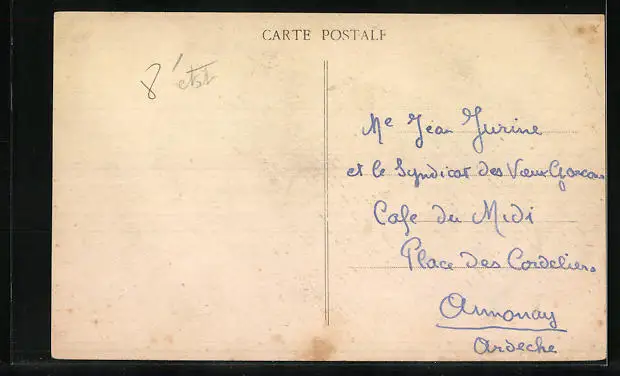 CARTE POSTALE
Me Jean Jurine
et le Syndicat des Vœux Garcons
Cafe du Midi
Place des Cordeliers
Annonay
Ardeche